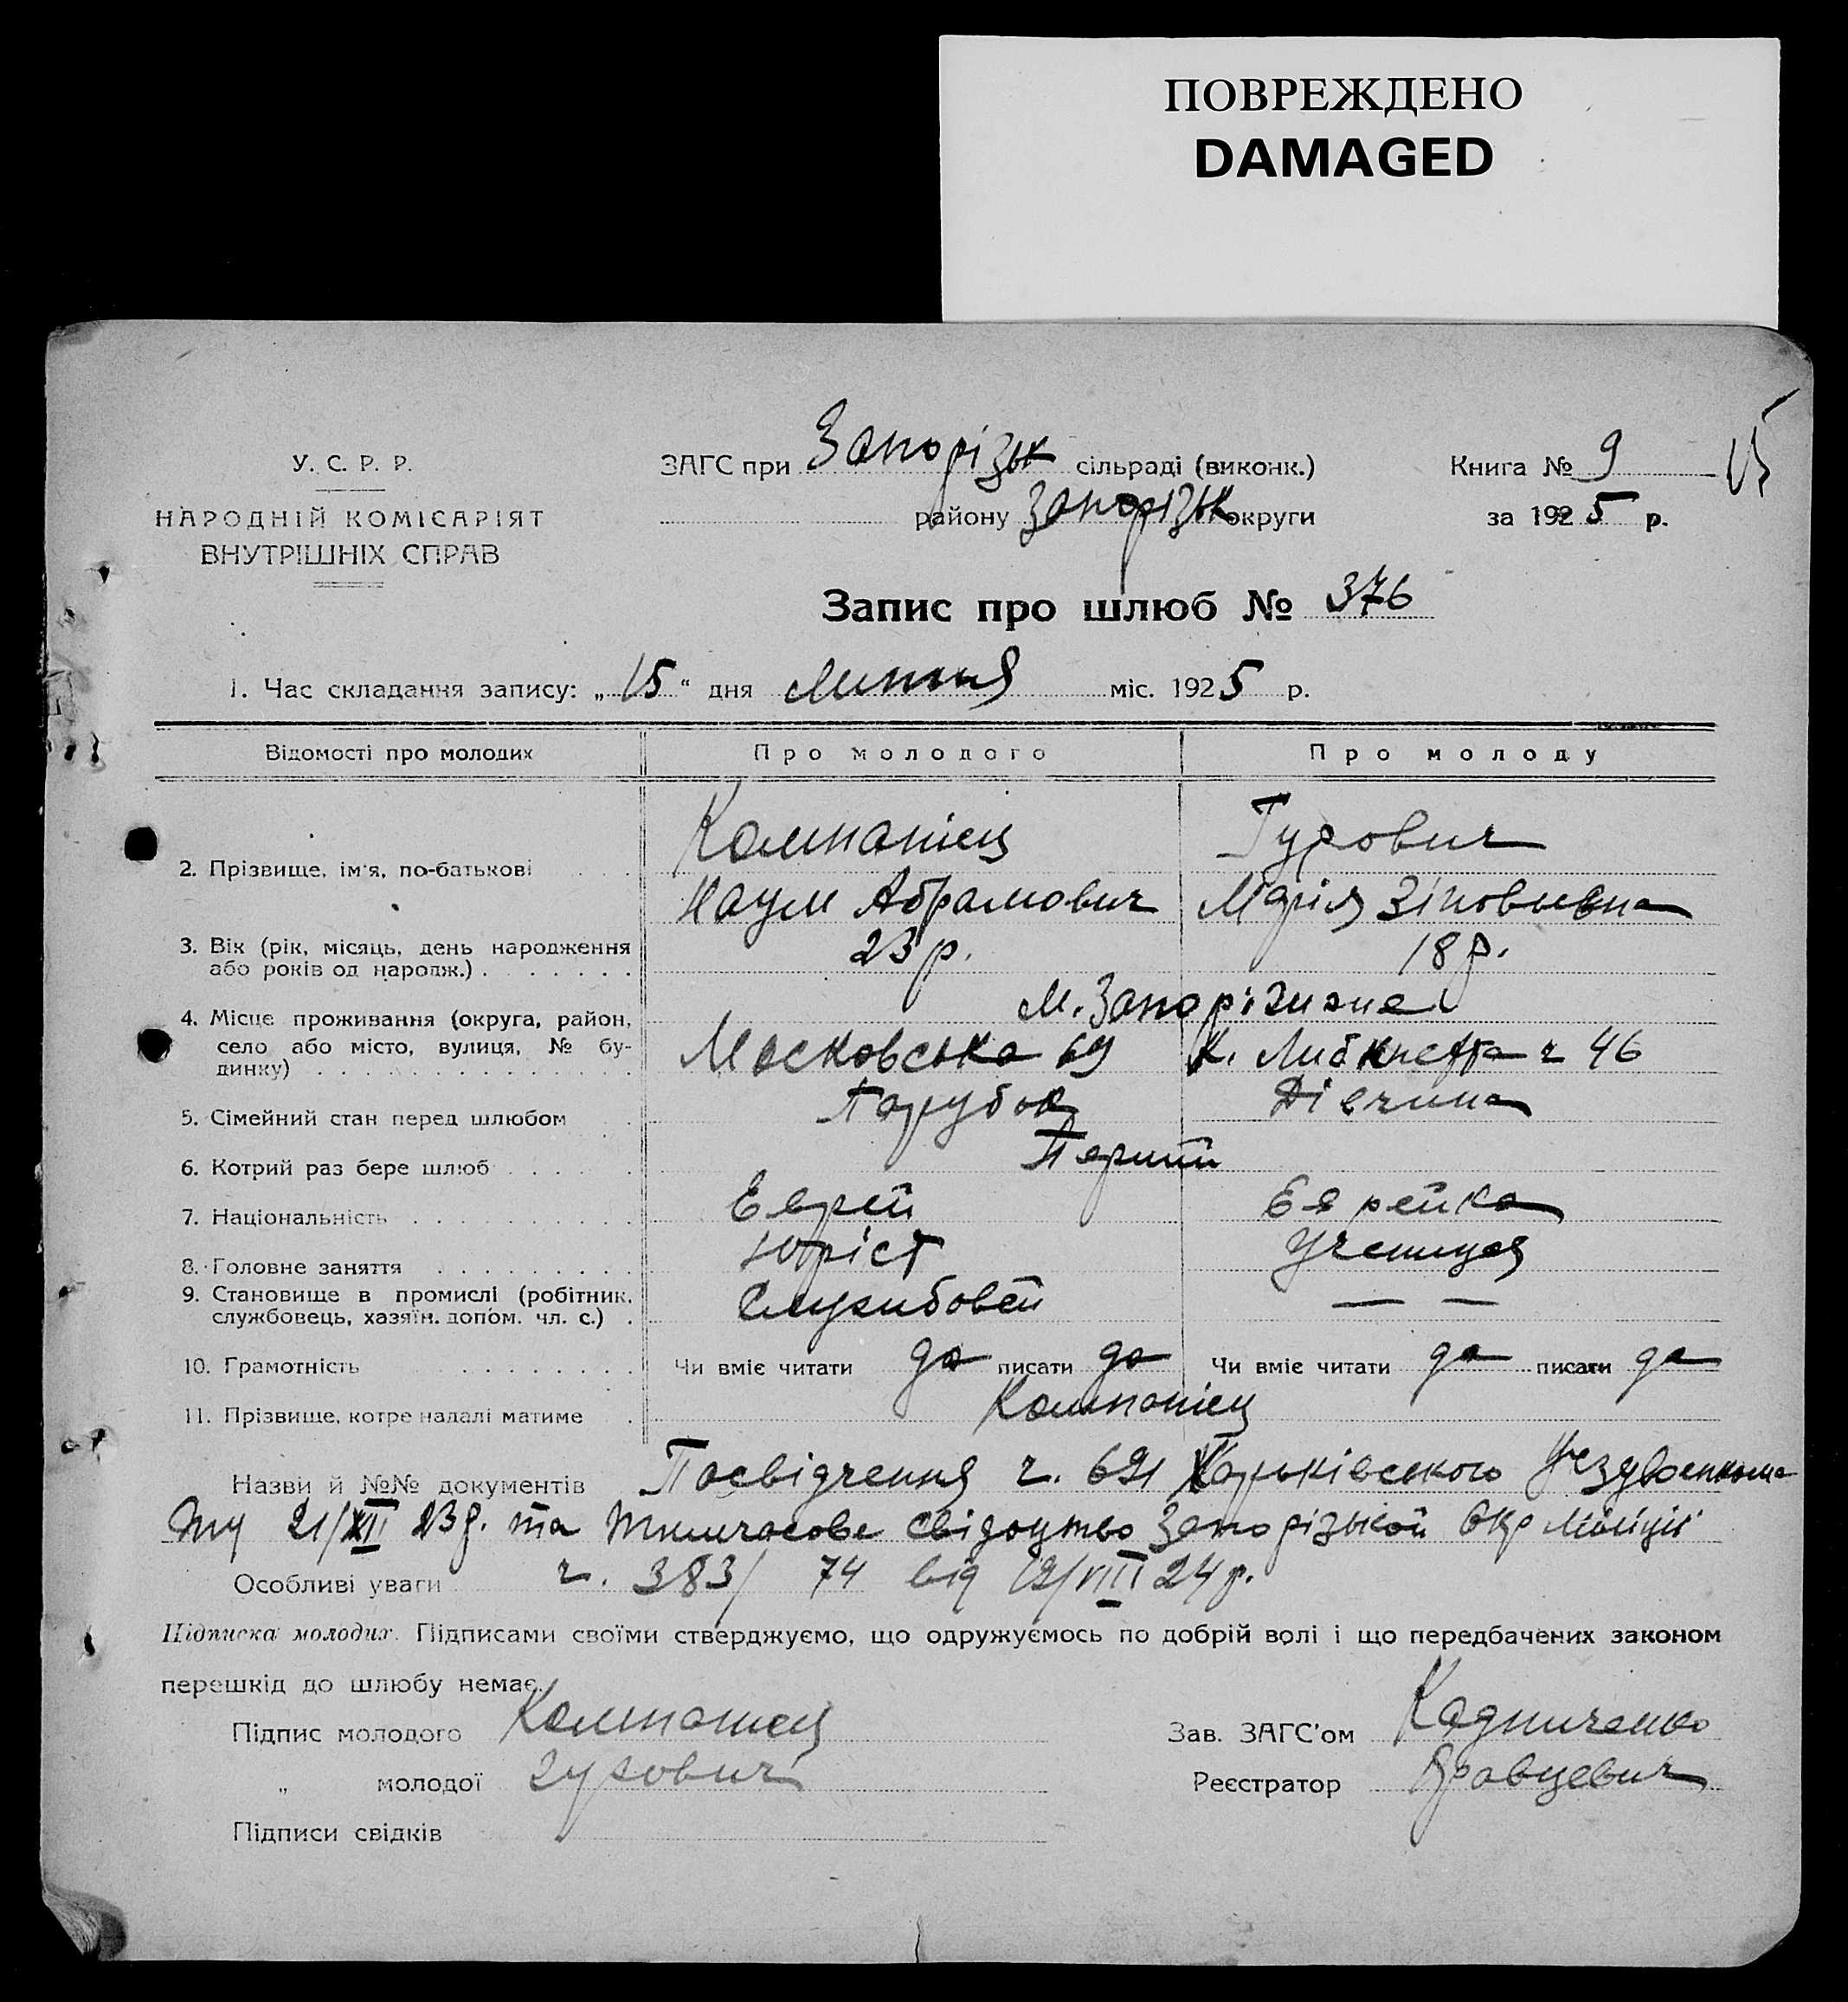 ПОВРЕЖДЕНО
DAMAGED
У. С. Р. Р.
НАРОДНІЙ КОМІСАРІЯТ
ВНУТРІШНІХ СПРАВ
ЗАГС при Запорізьк сільраді (виконк.)
району Запорізьк округи
Книга № 9
за 1925 р.
15
Запис про шлюб № 376
1. Час складання запису: „15" дня Липня міс. 1925 р.
Відомості про молодих Про молодого Про молоду
2. Прізвище, ім'я, по-батькові Компаніец Гурович
Наум Абрамович Марія Зіновьевна
3. Вік (рік, місяць, день народження або років од народж.) 23 р. 18 р.
4. Місце проживання (округа, район, село або місто, вулиця, № будинку) М. Запоріжже
Московська 69 К. Либкнехта ч 46
5. Сімейний стан перед шлюбом Парубок Дівчина
6. Котрий раз бере шлюб Перший
7. Національність Еврей Еврейка
8. Головне заняття Юріст Учениця
9. Становище в промислі (робітник, службовець, хазяїн. допом. чл. с.) Службовец — —
10. Грамотність Чи вміє читати да писати да Чи вміє читати да писати да
11. Прізвище, котре надалі матиме Компаніец
Назви й №№ документів Посвідчення ч. 691 Харьківського Уездвоенкома
ту 21/XII 23 р. та тимчасове свідоцтво Запорізькой Окр Міліціі
Особливі уваги ч. 383/74 від 12/VIII 24 р.
Підписка молодих. Підписами своїми стверджуємо, що одружуємось по добрій волі і що передбачених законом
перешкід до шлюбу немає.
Підпис молодого Компаниец
„ молодої Гурович
Підписи свідків
Зав. ЗАГС'ом
Реєстратор Кравцевич